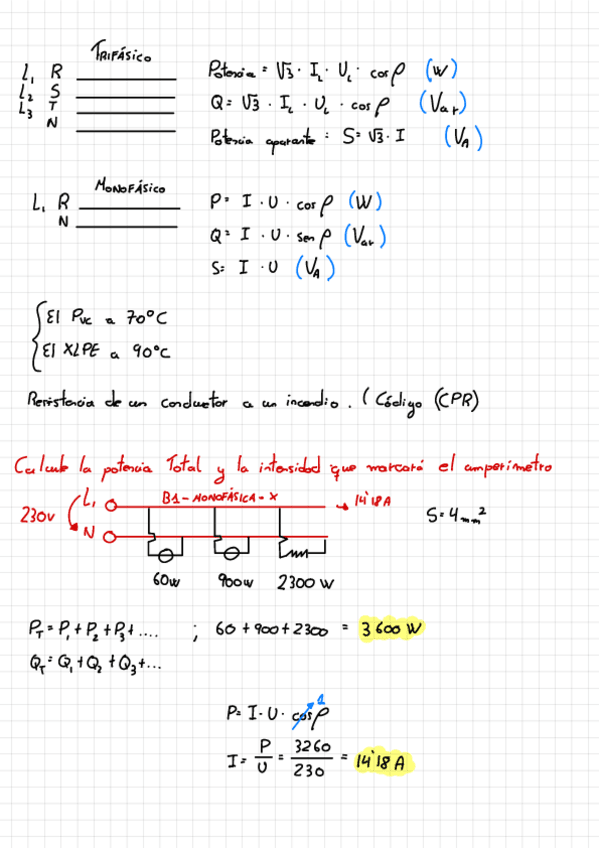 TRIFÁSICO
L1 R
L2 S
L3 T
N
Potencia = √3 · IL · UL · cos ρ (W)
Q = √3 · IL · UL · cos ρ (Var)
Potencia aparante : S = √3 · I (VA)
MONOFÁSICO
L1 R
N
P = I · U · cos ρ (W)
Q = I · U · sen ρ (Var)
S = I · U (VA)
El PVC a 70°C
El XLPE a 90°C
Resistencia de un conductor a un incendio. (Código (CPR)
Calcule la potencia Total y la intensidad que marcará el amperímetro
L1 B1-MONOFÁSICA-X → 14'18A
230V
N
S = 4mm²
60w 900w 2300 W
PT = P1 + P2 + P3 + .... ; 60 + 900 + 2300 = 3600 W
QT = Q1 + Q2 + Q3 + ...
P = I · U · cos ρ 1
I = P/U = 3260/230 = 14'18 A